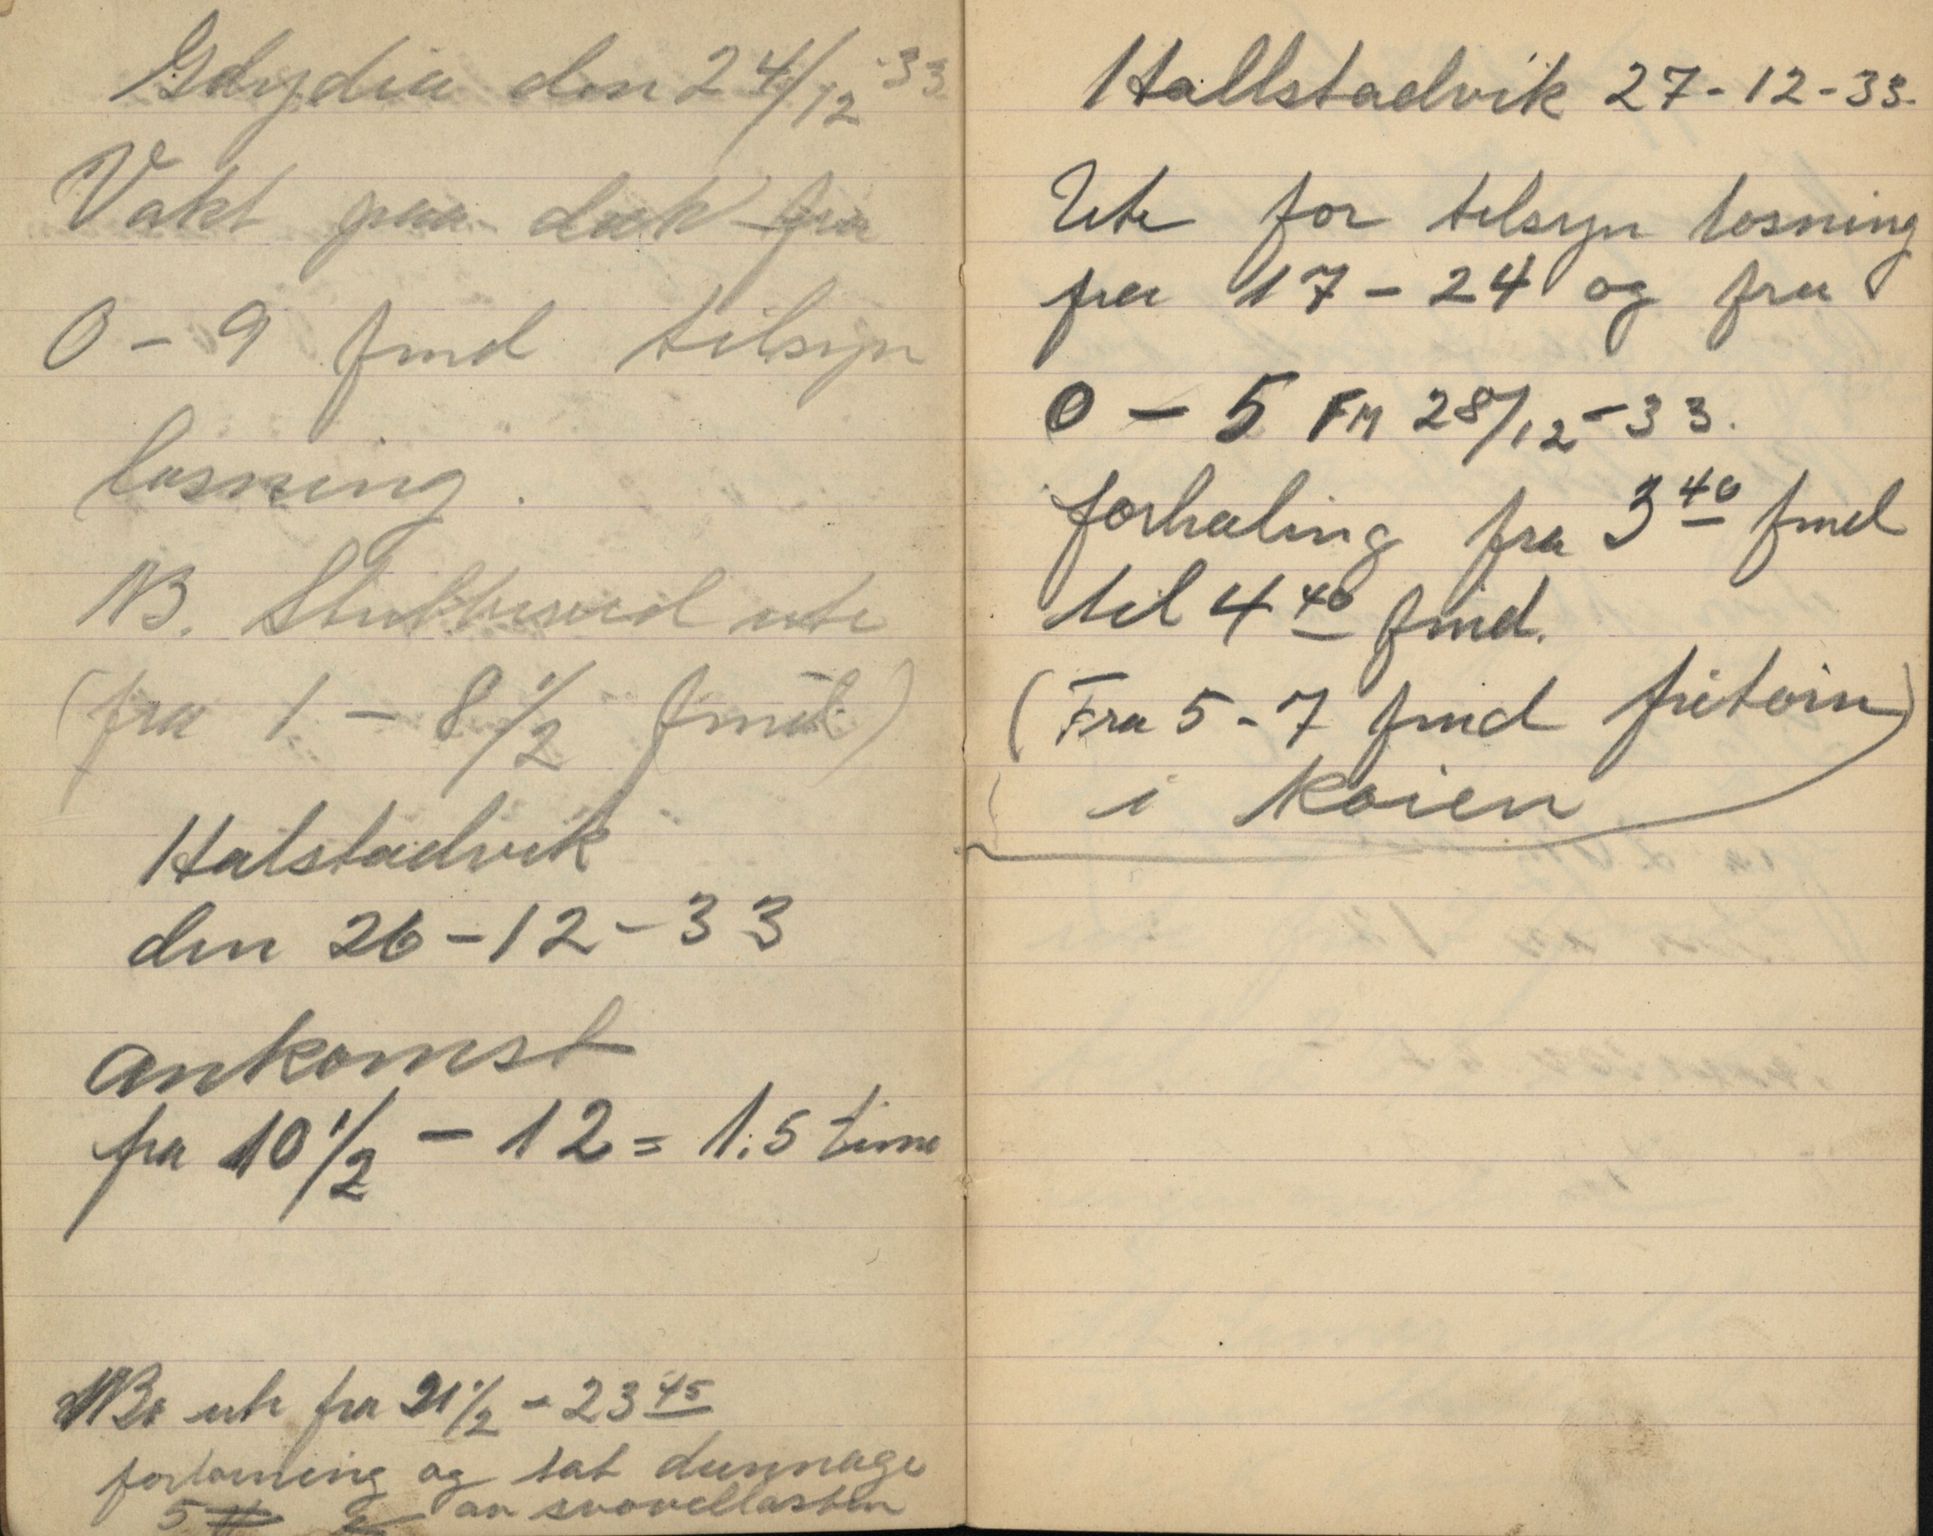 Gdydia den 24/12 33
Vakt paa dæk fra
0 - 9 fmd tilsyn
losning.
NB. Stubbesund ute
(fra 1 - 8 1/2 fmd)
Halstadvik
den 26-12-33
ankomst
fra 10 1/2 - 12 = 1.5 time
NB. ute fra 21 1/2 - 23 45
fortøining og tat dunnage
5 # av svovellasten
Hallstadvik 27-12-33.
Ute for tilsyn losning
fra 17 - 24 og fra
0 - 5 FM 28/12-33.
forhaling fra 3 40 fmd
til 4 40 fmd.
(Fra 5-7 fmd fritørn)
i køien